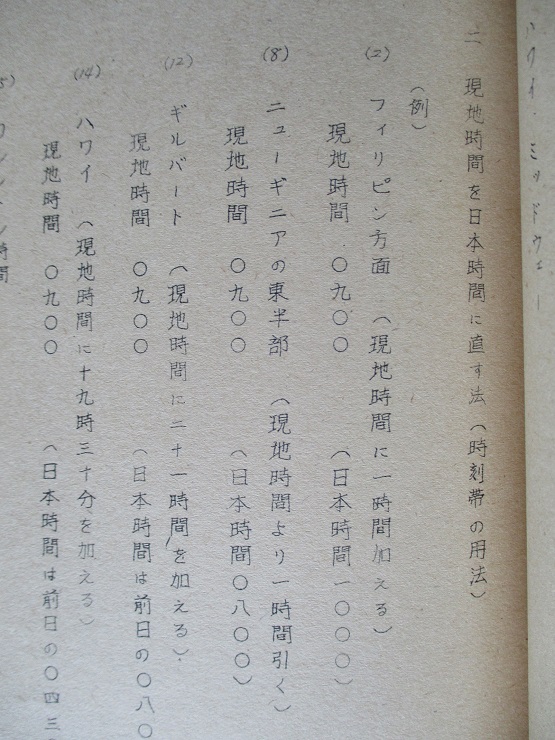 ハワイ・ミッドウェー
二 現地時間を日本時間に直す法(時刻帯の用法)
(例)
(2) フィリピン方面 (現地時間に一時間加える)
現地時間 〇九〇〇 (日本時間一〇〇〇)
(8) ニューギニアの東半部 (現地時間より一時間引く)
現地時間 〇九〇〇 (日本時間〇八〇〇)
(12) ギルバート (現地時間に二十一時間を加える)
現地時間 〇九〇〇 (日本時間は前日の〇八〇
(14) ハワイ (現地時間に十九時三十分を加える)
現地時間 〇九〇〇 (日本時間は前日の〇四三
時間